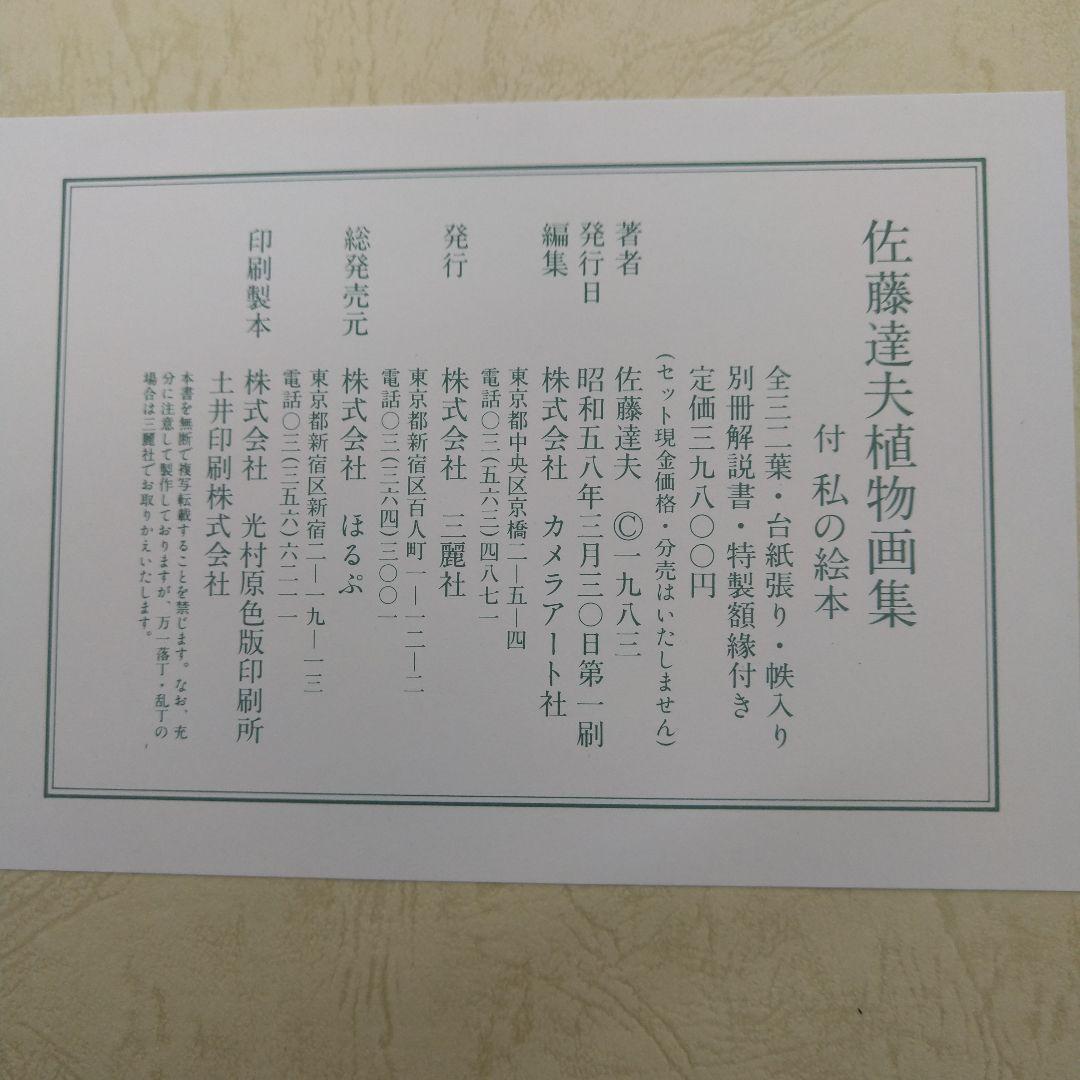 佐藤達夫植物画集
付 私の絵本
全三二葉・台紙張り・帙入り
別冊解説書・特製額縁付き
定価三九八〇〇円
(セット現金価格・分売はいたしません)
著者 佐藤達夫 ©一九八三
発行日 昭和五八年三月三〇日第一刷
編集 株式会社 カメラアート社
東京都中央区京橋二—五—四
電話〇三(五六三)四八七一
発行 株式会社 三麗社
東京都新宿区百人町一—一二—二
電話〇三(三六四)三〇〇一
総発売元 株式会社 ほるぷ
東京都新宿区新宿二—一九—一三
電話〇三(三五六)六二一一
印刷製本 株式会社 光村原色版印刷所
土井印刷株式会社
本書を無断で複写転載することを禁じます。なお、充
分に注意して製作しておりますが、万一落丁・乱丁の
場合は三麗社でお取りかえいたします。